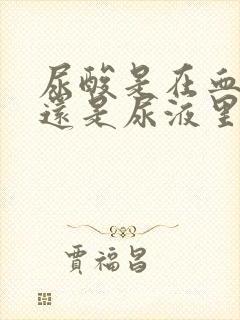 尿酸是在血
還是尿液里
賈福昌